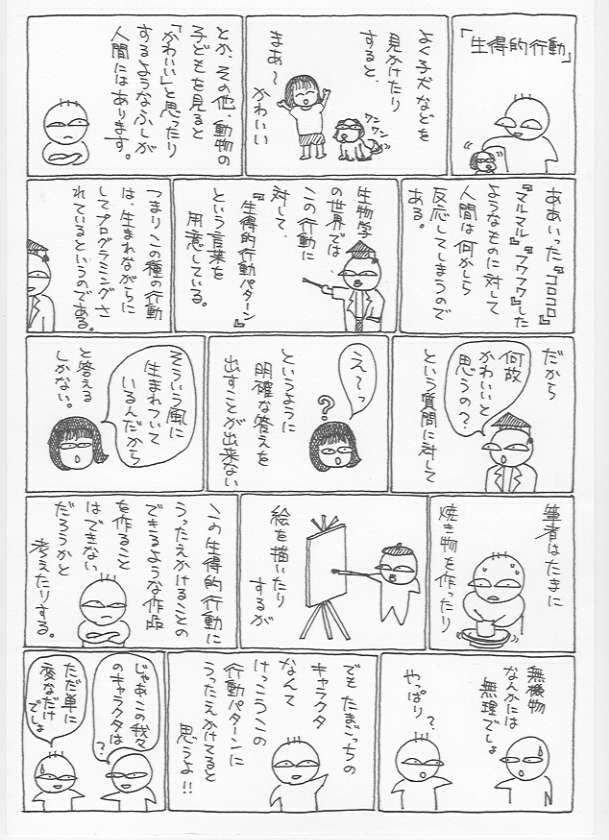 「生得的行動」
よく子犬などを
見かけたり
すると、
まあ〜
かわいい
ワンワン
とか、その他、動物の
子どもを見ると
「かわいい」と思ったり
するようなふしが
人間にはあります。
ああいった『コロコロ』
『マルマル』『フワフワ』した
ようなものに対して
人間は何かしら
反応してしまうので
ある。
生物学
の世界では、
この行動に
対して、
『生得的行動パターン』
という言葉を
用意している。
つまりこの種の行動
は、生まれながらに
してプログラミングさ
れているというのである。
だから
何故
かわいいと
思うの?
という質問に対して
え〜っ
?
というように
明確な答えを
出すことが出来ない
そういう風に
生まれついて
いるんだから
と答える
しかない。
筆者はたまに
焼き物を作ったり
絵を描いたり
するが
この生得的行動に
うったえかけることの
できるような作品
を作ること
はできない
だろうかと
考えたりする。
無機物
なんかには
無理でしょ
やっぱり?
でもたまごっちの
キャラクタ
なんて
けっこうこの
行動パターンに
うったえかけてると
思うよ!!
じゃあこの我々
のキャラクタは
?
ただ単に
変なだけ
でしょ